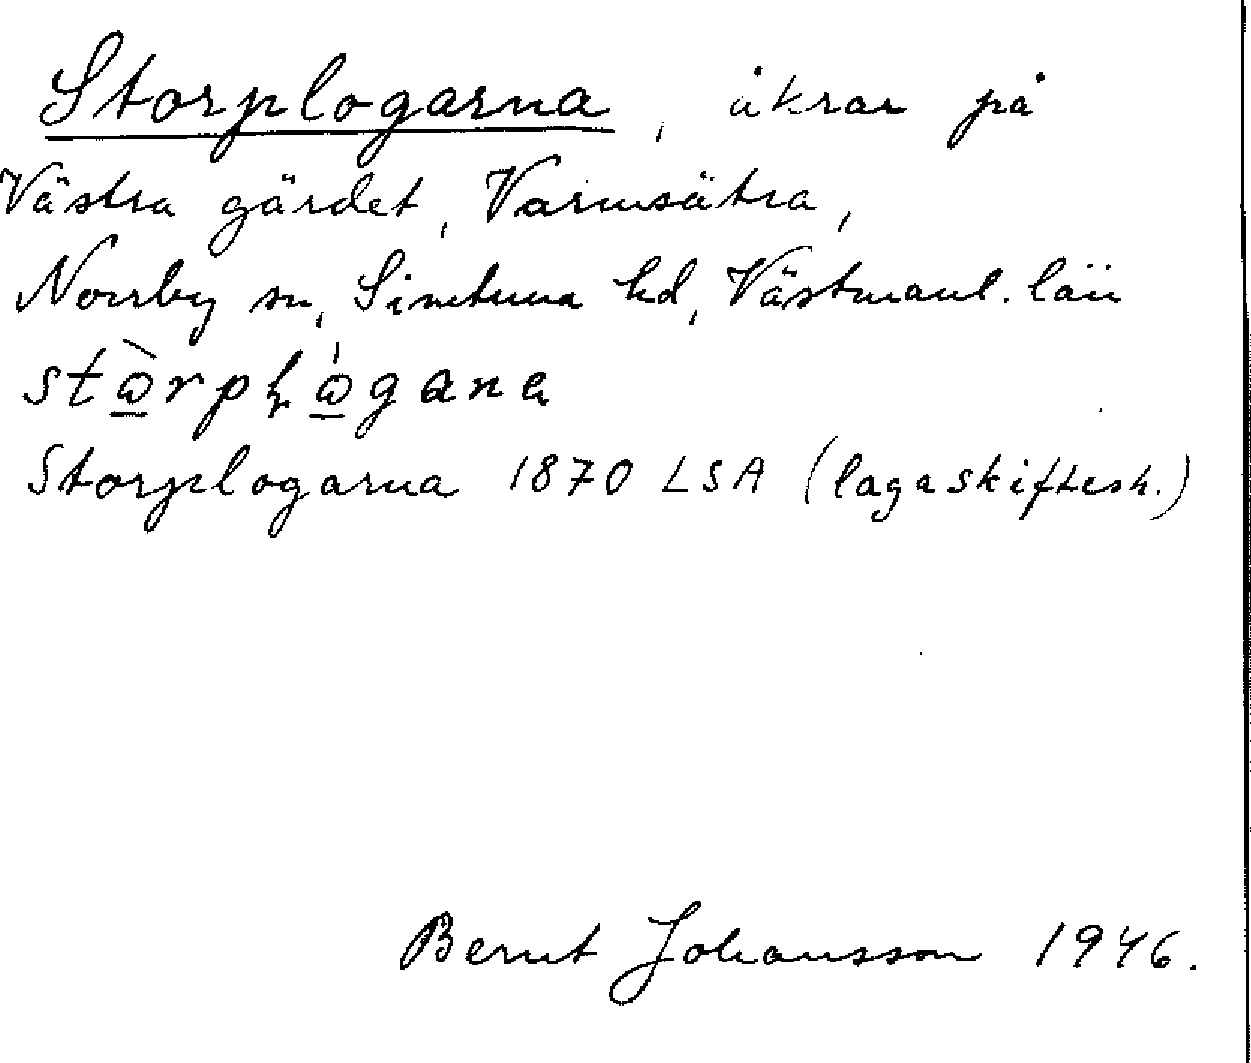 Storplogarna, åkrar på
Västra gärdet, Varmsätra,
Norrby sn, Simtuna hd, Västmanl. län
Storplogarna 1870 LSA (lagaskiftesh.)
Bernt Johansson 1946.